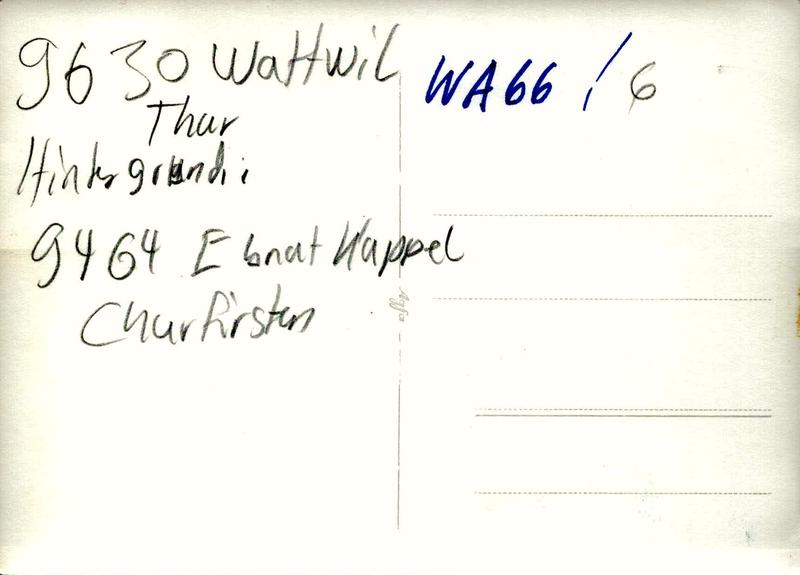 9630 Wattwil
Thur
Hintergrund:
9464 Ebnat Kappel
Churfirsten
WA66 / 6
Agfa